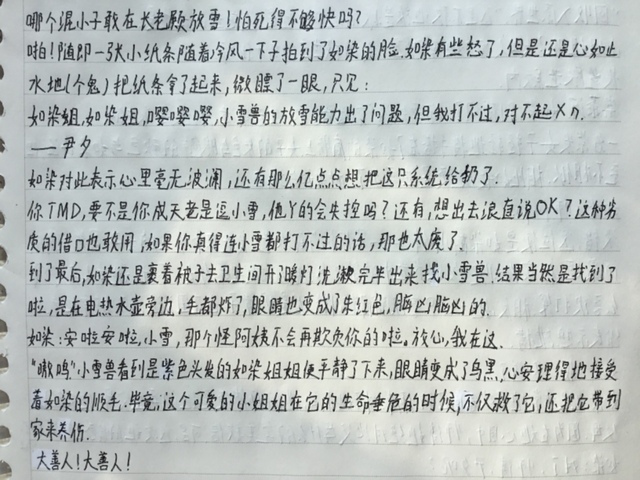 哪个混小子敢在长老殿放雪！怕死得不够快吗？
啪！随即一张小纸条随着冷风一下子拍到了如染的脸.如染有些怒了，但是还是心如止
水地(个鬼)把纸条拿了起来，微瞟了一眼，只见：
如染姐，如染姐，嘤嘤嘤，小雪兽的放雪能力出了问题，但我打不过，对不起×n.
——尹夕
如染对此表示心里毫无波澜，还有那么亿点点想把这只系统给扔了.
你TMD，要不是你成天老是逗小雪，他丫的会失控吗？还有，想出去浪直说OK？这种劣
质的借口也敢用，如果你真得连小雪都打不过的话，那也太废了.
到了最后，如染还是裹着被子去卫生间开了暖灯洗漱完毕出来找小雪兽.结果当然是找到了
啦，是在电热水壶旁边，毛都炸了，眼睛也变成了朱红色，脑凶脑凶的.
如染：安啦安啦，小雪，那个怪阿姨不会再欺负你的啦。放心，我在这.
“嗷呜”小雪兽看到是紫色头发的如染姐姐便平静了下来，眼睛变成了乌黑，心安理得地接受
着如染的顺毛.毕竟，这个可爱的小姐姐在它的生命垂危的时候，不仅救了它，还把它带到
家来养伤.
大善人！大善人！